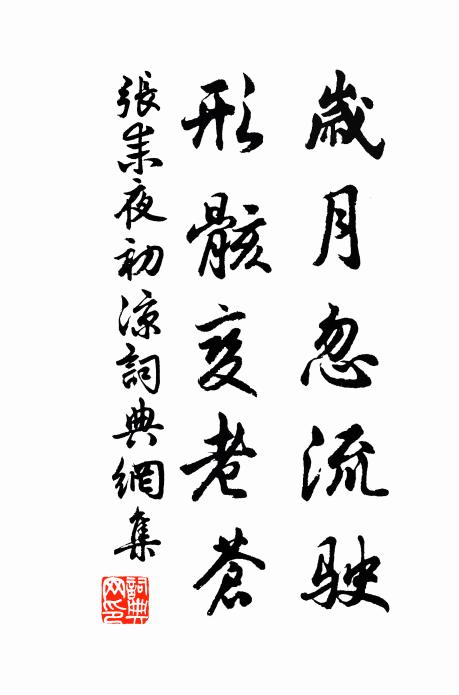 歲月忽流駛
形骸变老蒼
張耒夜初涼詞典網集
詞典网印